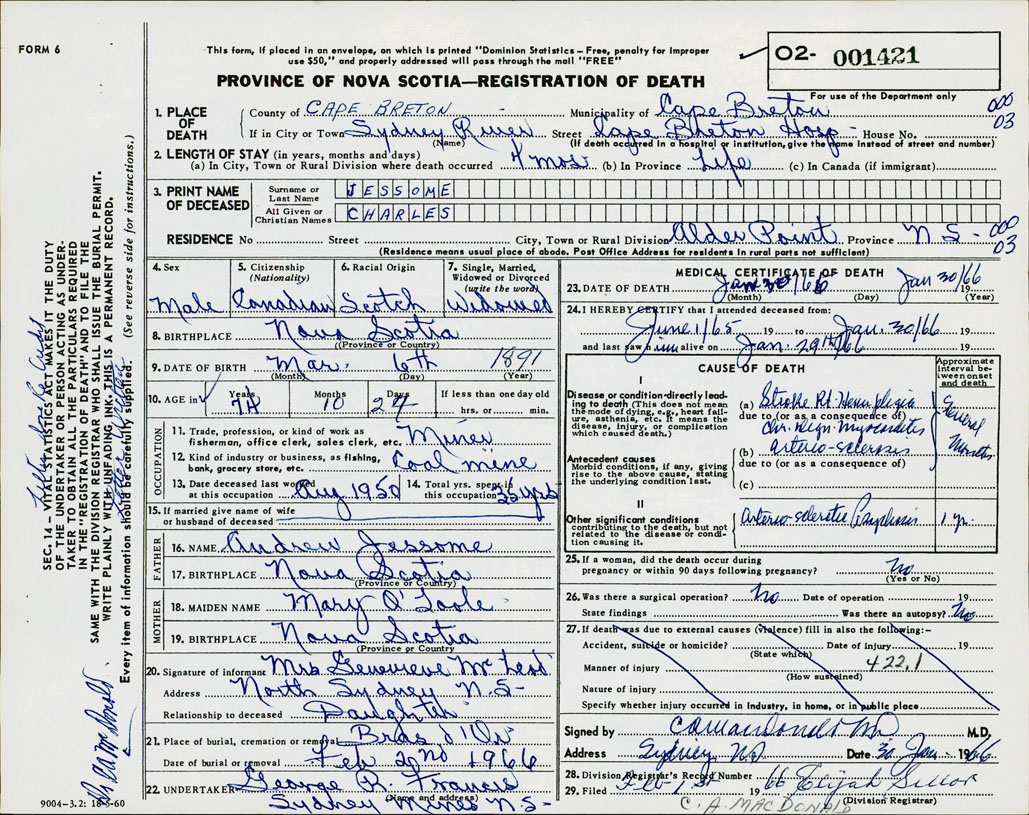 FORM 6
This form, if placed in an envelope, on which is printed "Dominion Statistics – Free, penalty for improper
use $50," and properly addressed will pass through the mail "FREE"
O2- 001421
PROVINCE OF NOVA SCOTIA—REGISTRATION OF DEATH
For use of the Department only
1. PLACE OF DEATH
County of CAPE BRETON Municipality of Cape Breton 000 03
If in City or Town Sydney River Street Cape Breton Hosp - House No.
(Name) (If death occurred in a hospital or institution, give the name instead of street and number)
2. LENGTH OF STAY (in years, months and days)
(a) In City, Town or Rural Division where death occurred 7 mos (b) In Province Life (c) In Canada (if immigrant)
3. PRINT NAME OF DECEASED
Surname or Last Name JESSOME
All Given or Christian Names CHARLES
RESIDENCE No Street City, Town or Rural Division Alder Point Province N S - 000 03
(Residence means usual place of abode. Post Office Address for residents in rural parts not sufficient)
4. Sex Male
5. Citizenship (Nationality) Canadian
6. Racial Origin Scotch
7. Single, Married, Widowed or Divorced (write the word) Widowed
8. BIRTHPLACE Nova Scotia
(Province or Country)
9. DATE OF BIRTH Mar. 6th 1891
(Month) (Day) (Year)
10. AGE in Years 74 Months 10 Days 24 If less than one day old
hrs. or min.
OCCUPATION
11. Trade, profession, or kind of work as
fisherman, office clerk, sales clerk, etc. Miner
12. Kind of industry or business, as fishing,
bank, grocery store, etc. Coal mine
13. Date deceased last worked
at this occupation Aug 1950
14. Total yrs. spent in
this occupation 35 yrs
15. If married give name of wife
or husband of deceased
FATHER
16. NAME Andrew Jessome
17. BIRTHPLACE Nova Scotia
(Province or Country)
MOTHER
18. MAIDEN NAME Mary O'Toole
19. BIRTHPLACE Nova Scotia
(Province or Country)
20. Signature of informant Mrs Genevieve McLeod
Address North Sydney N.S-
Relationship to deceased Daughter
21. Place of burial, cremation or removal Bras d'Or
Date of burial or removal Feb 2nd 1966
22. UNDERTAKER George R. Francis
(Name and address)
Sydney Mines N S-
9004-3.2: 18-5-60
MEDICAL CERTIFICATE OF DEATH
23. DATE OF DEATH Jan 30/66 Jan 30/66 19
(Month) (Day) (Year)
24. I HEREBY CERTIFY that I attended deceased from:
June 1/65 19 to Jan. 30/66 19
and last saw him alive on Jan. 29th/66 19
CAUSE OF DEATH
Approximate interval between onset and death
I
Disease or condition directly leading to death (This does not mean the mode of dying, e.g., heart failure, asthenia, etc. It means the disease, injury, or complication which caused death.)
(a) Stroke Rt Hemiplegia
due to (or as a consequence of)
Chr. Degn. myocarditis
(b) arterio-sclerosis
due to (or as a consequence of)
(c)
Several Months
Antecedent causes
Morbid conditions, if any, giving rise to the above cause, stating the underlying condition last.
II
Other significant conditions
contributing to the death, but not related to the disease or condition causing it.
Arterio-sclerotic 1 yr.
25. If a woman, did the death occur during
pregnancy or within 90 days following pregnancy? No
(Yes or No)
26. Was there a surgical operation? No Date of operation 19
State findings Was there an autopsy? No
27. If death was due to external causes (violence) fill in also the following:–
Accident, suicide or homicide? Date of injury 19
(State which)
Manner of injury 422.1
(How sustained)
Nature of injury
Specify whether injury occurred in industry, in home, or in public place
Signed by M.D.
Address Sydney, N.S. Date 30 Jan - 1966
28. Division Registrar's Record Number
29. Filed Feb 1st 19 66 Elijah
(Division Registrar)
C. A. MACDONALD
SEC. 14 – VITAL STATISTICS ACT MAKES IT THE DUTY
OF THE UNDERTAKER OR PERSON ACTING AS UNDER-
TAKER TO OBTAIN ALL THE PARTICULARS REQUIRED
IN THE "REGISTRATION OF DEATH" AND TO FILE THE
SAME WITH THE DIVISION REGISTRAR WHO SHALL ISSUE THE BURIAL PERMIT.
WRITE PLAINLY WITH UNFADING INK. THIS IS A PERMANENT RECORD.
Every item of information should be carefully supplied. (See reverse side for instructions.)